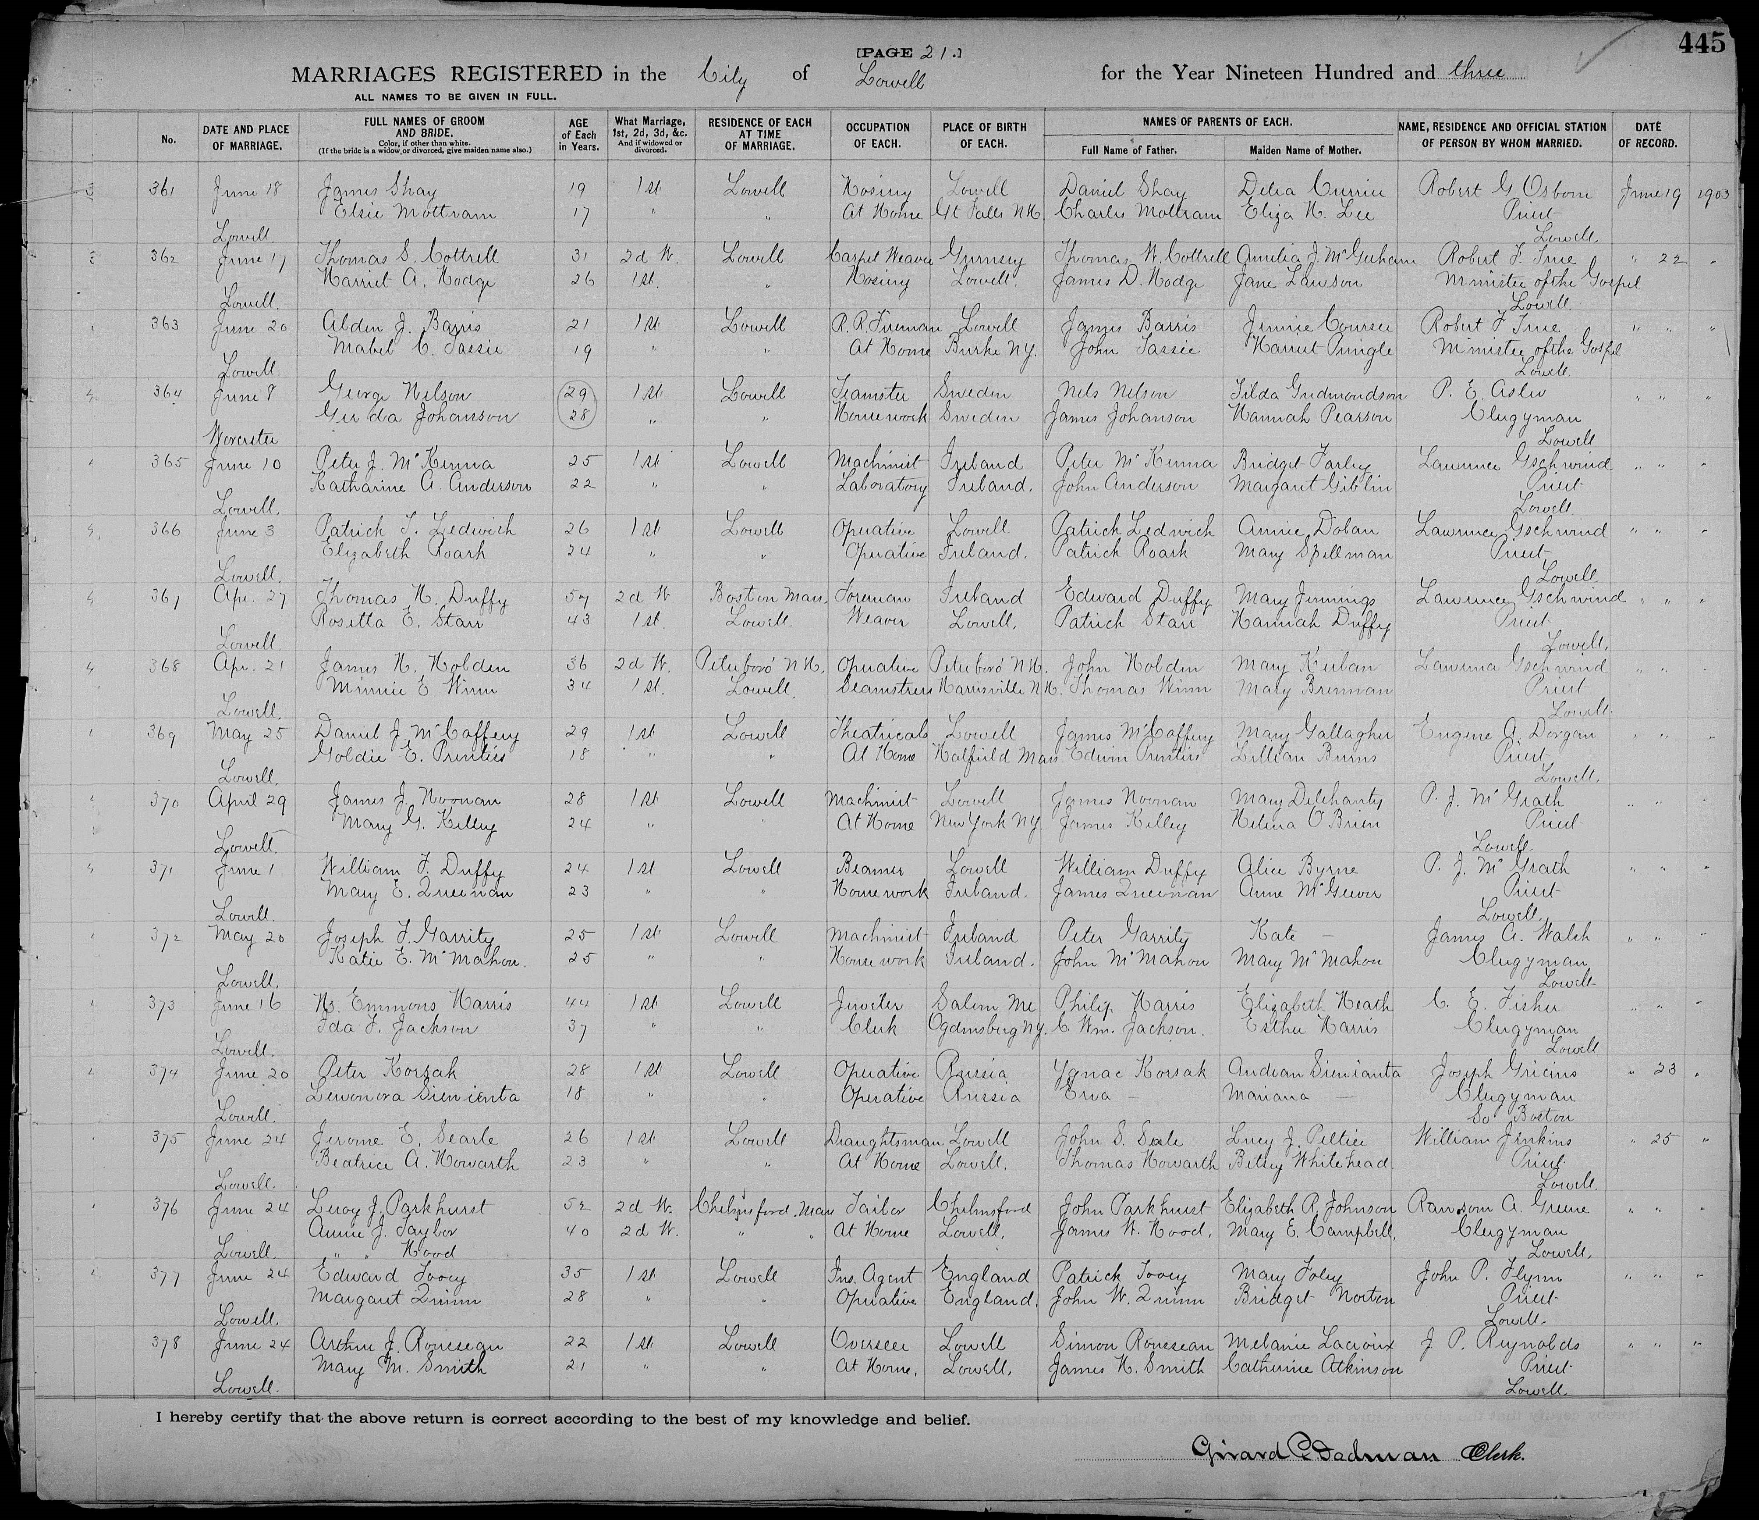 445
[PAGE 21.]
MARRIAGES REGISTERED in the City of Lowell for the Year Nineteen Hundred and three
ALL NAMES TO BE GIVEN IN FULL.
No. DATE AND PLACE OF MARRIAGE. FULL NAMES OF GROOM AND BRIDE. Color, if other than white. (If the bride is a widow or divorced, give maiden name also.) AGE of Each in Years. What Marriage, 1st, 2d, 3d, &c. And if widowed or divorced. RESIDENCE OF EACH AT TIME OF MARRIAGE. OCCUPATION OF EACH. PLACE OF BIRTH OF EACH. NAMES OF PARENTS OF EACH. Full Name of Father. Maiden Name of Mother. NAME, RESIDENCE AND OFFICIAL STATION OF PERSON BY WHOM MARRIED. DATE OF RECORD.
361 June 18 James Shay 19 1st Lowell Hosiery Lowell Daniel Shay Delia Currier Robert G Osborn June 19 1903
Elsie Mottram 17 " " At Home Gt Falls N.H. Charles Mottram Eliza H. Lee Priest
Lowell. Lowell.
362 June 17 Thomas S. Cottrell 31 2d W. Lowell Carpet Weaver Guernsey Thomas W. Cottrell Amelia J. McGeeham Robert F. True " 22 "
Harriet A. Hodge 26 1st. " Hosiery Lowell. James D. Hodge Jane Lawson Minister of the Gospel
Lowell. Lowell.
363 June 20 Alden J. Barris 21 1st Lowell R.R. Fireman Lowell James Barris Jennie Courser Robert F True " " "
Mabel C. Tassie 19 " " At Home Burke N.Y. John Tassie Harriet Pringle Minister of the Gospel
Lowell Lowell.
364 June 8 George Nelson 29 1st Lowell Teamster Sweden Nels Nelson Tilda Gudmondson P. E. Aslev " " "
Gerda Johansson 28 " " Housework Sweden James Johanson Hannah Pearson Clergyman
Worcester Lowell
365 June 10 Peter J. McKenna 25 1st Lowell Machinist Ireland Peter McKenna Bridget Farley Lawrence Gschwind " " "
Katharine A. Anderson 22 " " Laboratory Ireland. John Anderson Margaret Giblin Priest
Lowell. Lowell
366 June 3 Patrick T. Ledwich 26 1st Lowell Operative Lowell Patrick Ledwich Annie Dolan Lawrence Gschwind " " "
Elizabeth Roark 24 " " Operative Ireland. Patrick Roark Mary Spellman Priest
Lowell. Lowell
367 Apr. 27 Thomas H. Duffy 57 2d W Boston Mass. Foreman Ireland Edward Duffy Mary Jennings Lawrence Gschwind " " "
Rosetta E. Starr 43 1st. Lowell. Weaver Lowell. Patrick Starr Hannah Duffy Priest
Lowell Lowell.
368 Apr. 21 James H. Holden 36 2d W. Peterboro' N.H. Operative Peterboro' N.H. John Holden Mary Keelan Lawrence Gschwind " " "
Minnie E Winn 34 1st. Lowell. Seamstress Harrisville N.H. Thomas Winn Mary Brennan Priest
Lowell. Lowell.
369 May 25 Daniel J. McCaffery 29 1st Lowell Theatricals Lowell James McCaffery Mary Gallagher Eugene A. Dorgan " " "
Goldie E. Prentiss 18 " " At Home Hatfield Mass Edwin Prentiss Lillian Burns Priest
Lowell. Lowell.
370 April 29 James J. Noonan 28 1st Lowell Machinist Lowell James Noonan Mary Delehanty P. J. McGrath " " "
Mary G. Kelley 24 " " At Home New York N.Y. James Kelley Helena O'Brien Priest
Lowell. Lowell.
371 June 1 William F. Duffy 24 1st Lowell Beamer Lowell William Duffy Alice Byrne P. J. McGrath " " "
Mary E. Queenan 23 " " Housework Ireland. James Queenan Anne McGeever Priest
Lowell. Lowell.
372 May 20 Joseph F. Garrity 25 1st Lowell Machinist Ireland Peter Garrity Kate — James A. Walsh " " "
Katie E. McMahon. 25 " " Housework Ireland. John McMahon Mary McMahon Clergyman
Lowell. Lowell.
373 June 16 H. Emmons Harris 44 1st Lowell Jeweler Salem Me Philip Harris Elizabeth Heath C. E. Fisher " " "
Ida F. Jackson 37 " " Clerk Ogdensberg N.Y. C. Wm. Jackson. Esther Harris Clergyman
Lowell. Lowell
374 June 20 Peter Korsak 28 1st Lowell Operative Russia Ygnac Korsak Andean Sienianta Joseph Griems " 23 "
Lewonora Sienienta 18 " " Operative Russia Erva — Mariana — Clergyman
Lowell. So Boston
375 June 24 Jerome E. Searle 26 1st Lowell Draughtsman Lowell John S. Searle Lucy J. Peltier William Jenkins " 25 "
Beatrice A. Howarth 23 " " At Home Lowell. Thomas Howarth Betsey Whitehead Priest
Lowell. Lowell.
376 June 24 Leroy J. Parkhurst 52 2d W. Chelmsford Mass Tailor Chelmsford John Parkhurst Elizabeth R. Johnson Ransom A. Greene " " "
Annie J. Taylor 40 2d W. " " At Home Lowell. James W. Hood. Mary E. Campbell. Clergyman
Lowell. " " Hood Lowell.
377 June 24 Edward Tovey 35 1st Lowell Ins. Agent England Patrick Tovey Mary Foley John P. Flynn " " "
Margaret Quinn 28 " " Operative England. John W. Quinn Bridget Norton Priest
Lowell. Lowell.
378 June 24 Arthur J. Rousseau 22 1st Lowell Overseer Lowell Simon Rousseau Melanie Lacroix J P. Reynolds " " "
Mary M. Smith 21 " " At Home. Lowell. James H. Smith Catherine Atkinson Priest
Lowell. Lowell.
I hereby certify that the above return is correct according to the best of my knowledge and belief.
Girard P. Dadman Clerk.